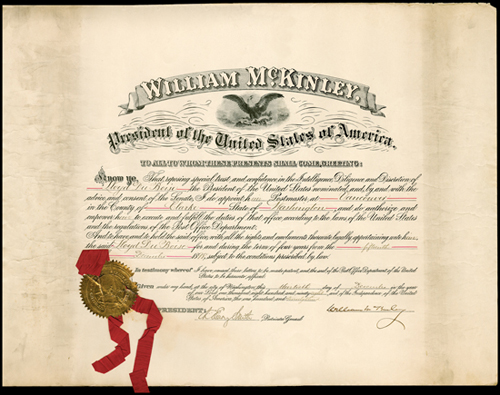 WILLIAM McKINLEY,
President of the United States of America.
TO ALL TO WHOM THESE PRESENTS SHALL COME, GREETING:
Know ye, That reposing special trust and confidence in the Intelligence, Diligence and Discretion of
the President of the United States nominated, and, by and with the
advice and consent of the Senate, I do appoint him Postmaster at Vancouver
in the County of Clarke State of Washington and do authorize and
empower him to execute and fulfil the duties of that office according to the laws of the United States
and the regulations of the Post Office Department:
And to have and to hold the said office, with all the rights and emoluments thereunto legally appertaining unto
the said for and during the term of four years from the
subject to the conditions prescribed by law.
In testimony whereof I have caused these letters to be made patent, and the seal of the Post Office Department of the United
States to be hereunto affixed.
Given under my hand, at the city of Washington, the day of December in the year
of our Lord one thousand eight hundred and ninety and of the Independence of the United
States of America the one hundred and
PRESIDENT:
William McKinley
Postmaster General